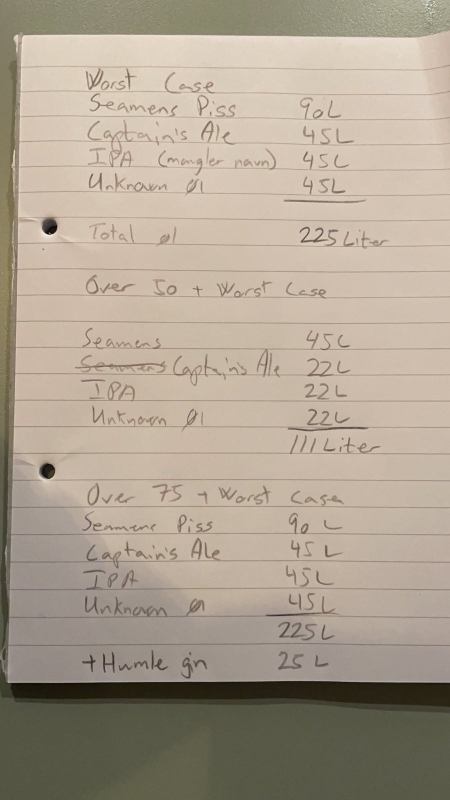 Worst Case
Seamens Piss 90L
Captain's Ale 45L
IPA (mangler navn) 45L
Unknown Øl 45L
Total øl 225 Liter
Over 50 + Worst Case
Seamens 45L
Seamens Captain's Ale 22L
IPA 22L
Unknown Øl 22L
111 Liter
Over 75 + Worst Case
Seamens Piss 90 L
Captain's Ale 45 L
IPA 45L
Unknown Øl 45L
225L
+ Humle gin 25 L